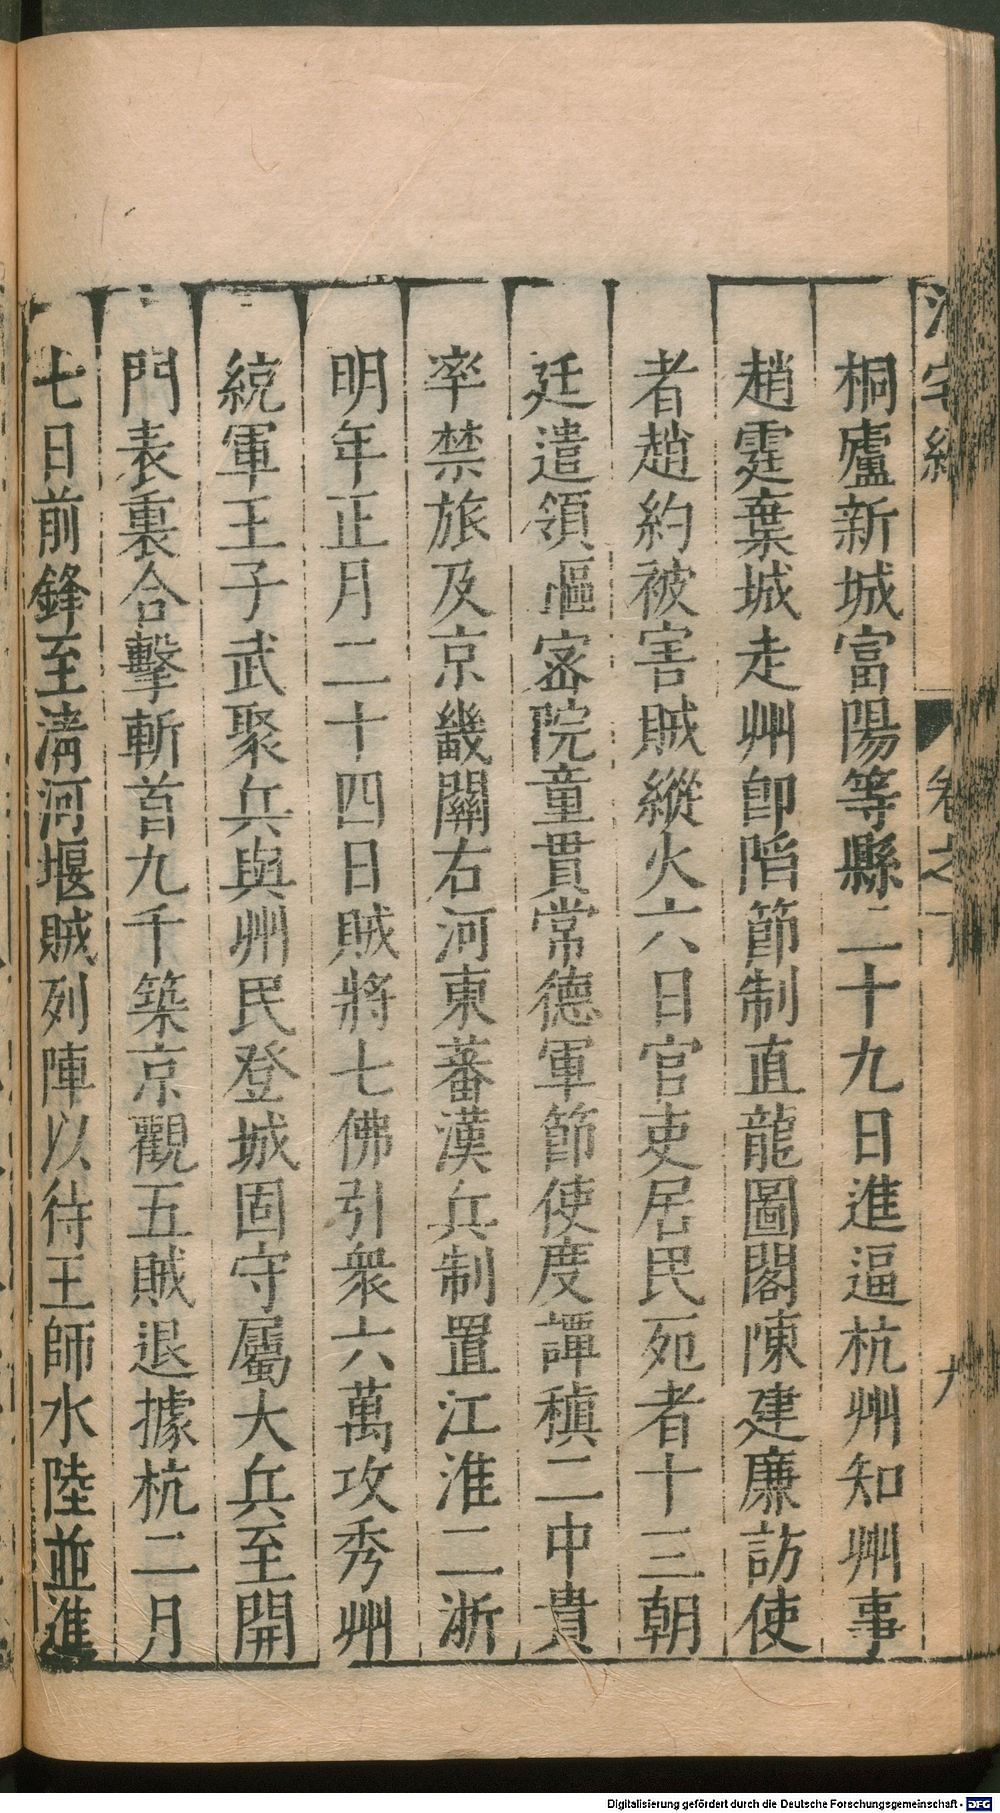 桐廬新城富陽等縣二十九日進逼杭州知州事
趙霆棄城走州卽陷節制直龍圖閣陳建廉訪使
者趙約被害賊縱火六日官吏居民死者十三朝
廷遣領樞密院童貫常德軍節使度譚稹二中貴
率禁旅及京畿關右河東蕃漢兵制置江淮二浙
明年正月二十四日賊將七佛引衆六萬攻秀州
統軍王子武聚兵與州民登城固守屬大兵至開
門表裏合擊斬首九千築京觀五賊退據杭二月
七日前鋒至淸河堰賊列陣以待王師水陸並進
卷之下
九
Digitalisierung gefördert durch die Deutsche Forschungsgemeinschaft - DFG